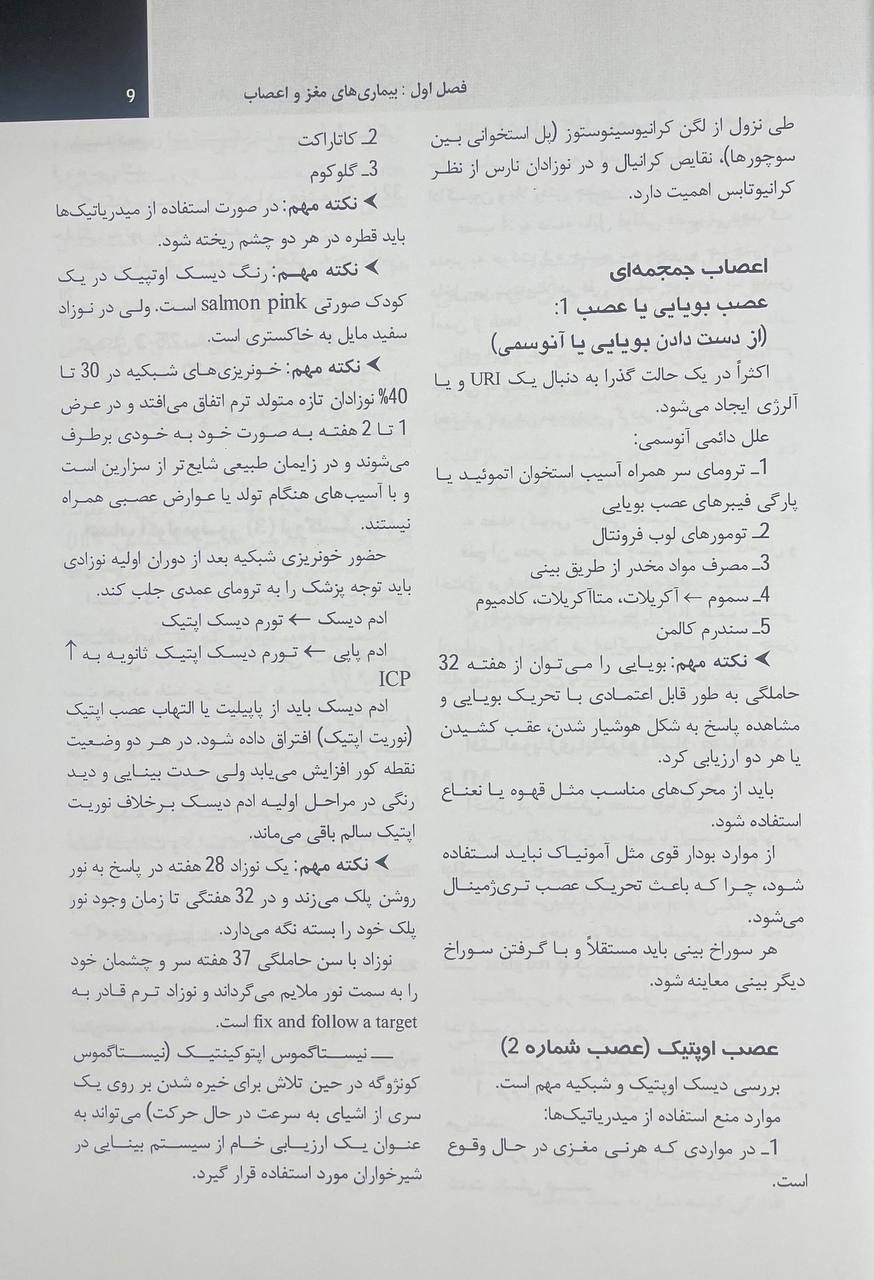 فصل اول : بیماری‌های مغز و اعصاب
9
طی نزول از لگن کرانیوسینوستوز (پل استخوانی بین
سوچورها)، نقایص کرانیال و در نوزادان نارس از نظر
کرانیوتابس اهمیت دارد.
اعصاب جمجمه‌ای
عصب بویایی یا عصب 1:
(از دست دادن بویایی یا آنوسمی)
اکثراً در یک حالت گذرا به دنبال یک URI و یا
آلرژی ایجاد می‌شود.
علل دائمی آنوسمی:
1ـ ترومای سر همراه آسیب استخوان اتموئید یا
پارگی فیبرهای عصب بویایی
2ـ تومورهای لوب فرونتال
3ـ مصرف مواد مخدر از طریق بینی
4ـ سموم ← آکریلات، متاآکریلات، کادمیوم
5ـ سندرم کالمن
➤ نکته مهم: بویایی را می‌توان از هفته 32
حاملگی به طور قابل اعتمادی با تحریک بویایی و
مشاهده پاسخ به شکل هوشیار شدن، عقب کشیدن
یا هر دو ارزیابی کرد.
باید از محرک‌های مناسب مثل قهوه یا نعناع
استفاده شود.
از موارد بودار قوی مثل آمونیاک نباید استفاده
شود، چرا که باعث تحریک عصب تری‌ژمینال
می‌شود.
هر سوراخ بینی باید مستقلاً و با گرفتن سوراخ
دیگر بینی معاینه شود.
عصب اوپتیک (عصب شماره 2)
بررسی دیسک اوپتیک و شبکیه مهم است.
موارد منع استفاده از میدریاتیک‌ها:
1ـ در مواردی که هرنی مغزی در حال وقوع
است.
2ـ کاتاراکت
3ـ گلوکوم
➤ نکته مهم: در صورت استفاده از میدریاتیک‌ها
باید قطره در هر دو چشم ریخته شود.
➤ نکته مهم: رنگ دیسک اوتپیک در یک
کودک صورتی salmon pink است. ولی در نوزاد
سفید مایل به خاکستری است.
➤ نکته مهم: خونریزی‌های شبکیه در 30 تا
40% نوزادان تازه متولد ترم اتفاق می‌افتد و در عرض
1 تا 2 هفته به صورت خود به خودی برطرف
می‌شوند و در زایمان طبیعی شایع‌تر از سزارین است
و با آسیب‌های هنگام تولد یا عوارض عصبی همراه
نیستند.
حضور خونریزی شبکیه بعد از دوران اولیه نوزادی
باید توجه پزشک را به ترومای عمدی جلب کند.
ادم دیسک ← تورم دیسک اپتیک
ادم پاپی ← تورم دیسک اپتیک ثانویه به ↑
ICP
ادم دیسک باید از پاپیلیت یا التهاب عصب اپتیک
(نوریت اپتیک) افتراق داده شود. در هر دو وضعیت
نقطه کور افزایش می‌یابد ولی حدت بینایی و دید
رنگی در مراحل اولیه ادم دیسک برخلاف نوریت
اپتیک سالم باقی می‌ماند.
➤ نکته مهم: یک نوزاد 28 هفته در پاسخ به نور
روشن پلک می‌زند و در 32 هفتگی تا زمان وجود نور
پلک خود را بسته نگه می‌دارد.
نوزاد با سن حاملگی 37 هفته سر و چشمان خود
را به سمت نور ملایم می‌گرداند و نوزاد ترم قادر به
fix and follow a target است.
ــ نیستاگموس اپتوکینتیک (نیستاگموس
کونژوگه در حین تلاش برای خیره شدن بر روی یک
سری از اشیای به سرعت در حال حرکت) می‌تواند به
عنوان یک ارزیابی خام از سیستم بینایی در
شیرخواران مورد استفاده قرار گیرد.